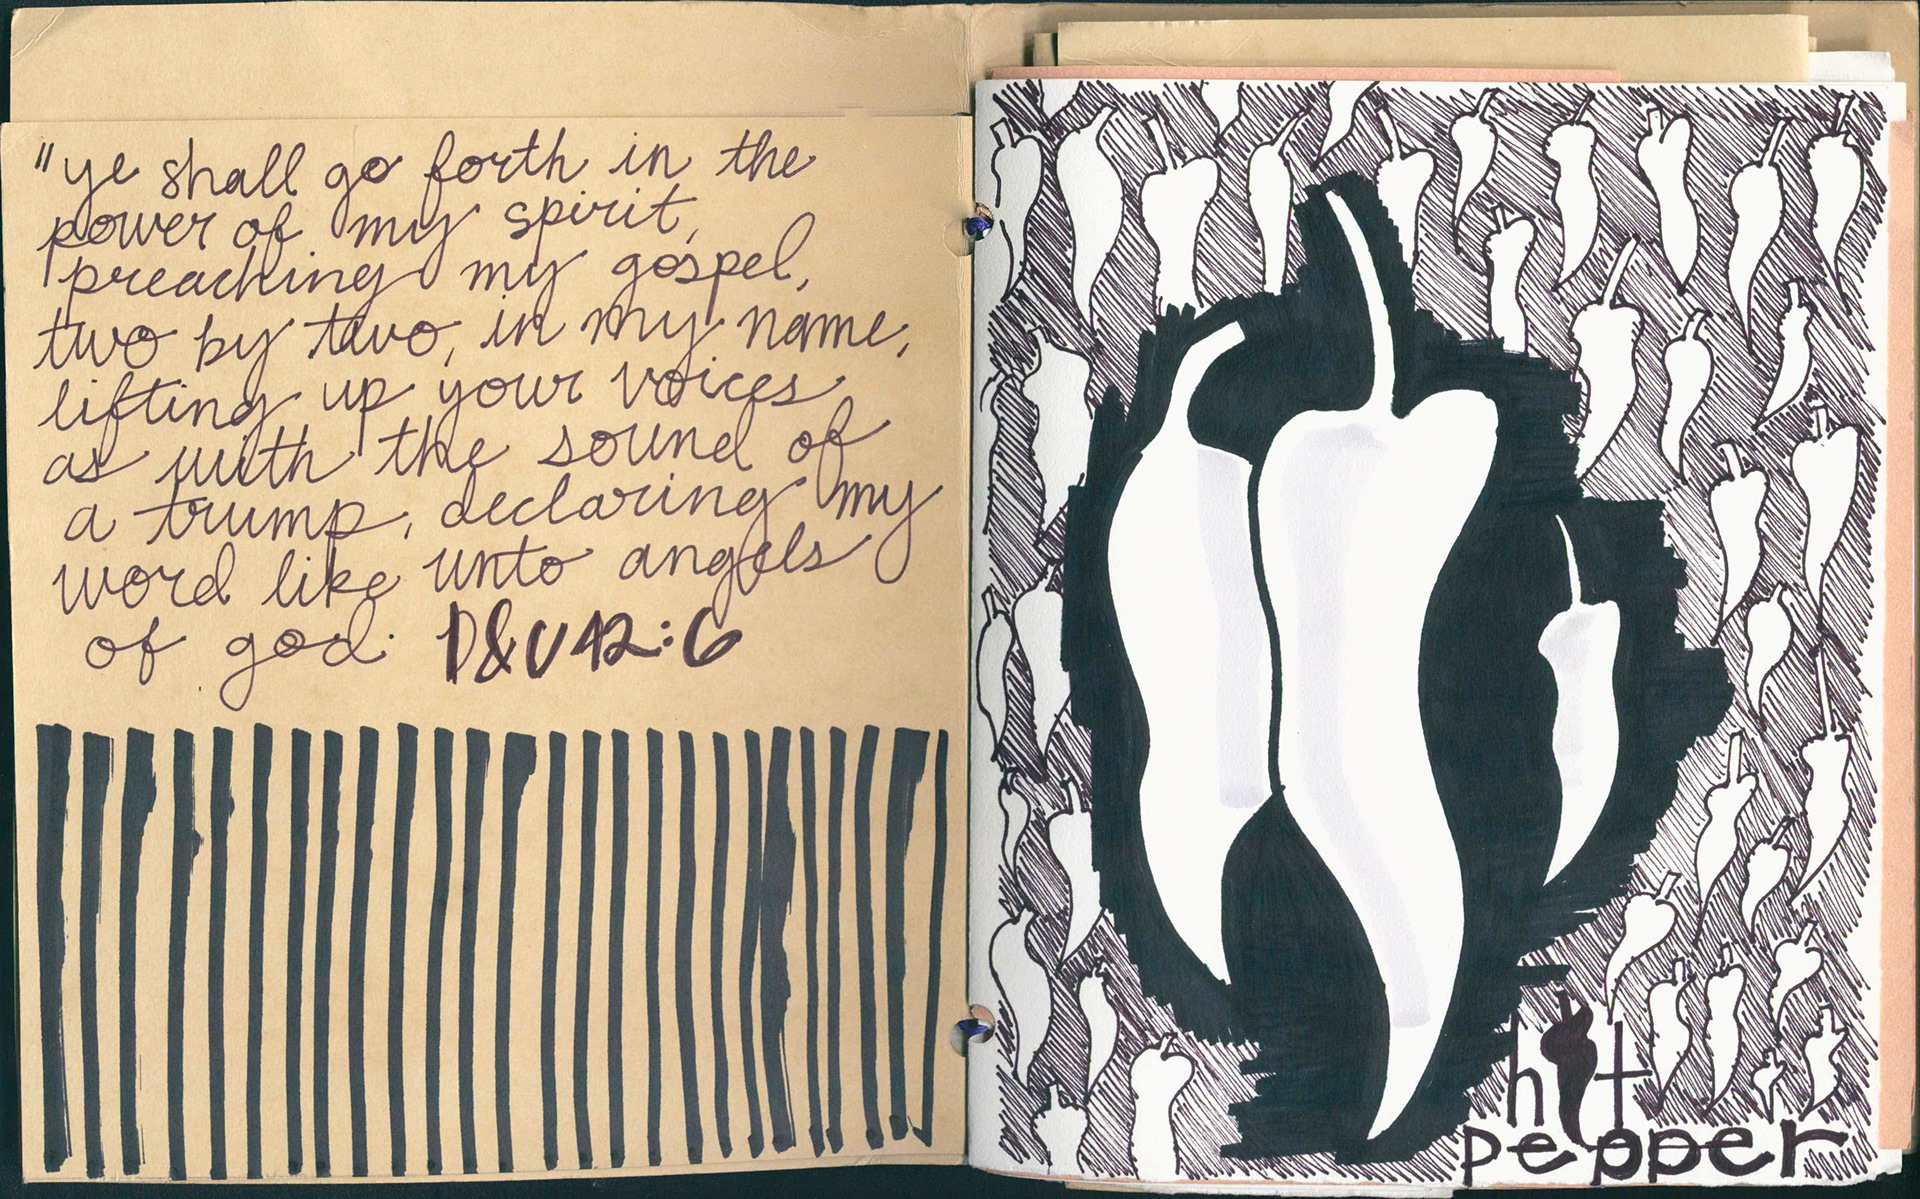 "ye shall go forth in the
power of my spirit,
preaching my gospel,
two by two, in my name,
lifting up your voices
as with the sound of
a trump, declaring my
word like unto angels
of god. D&C 42:6
hot
pepper